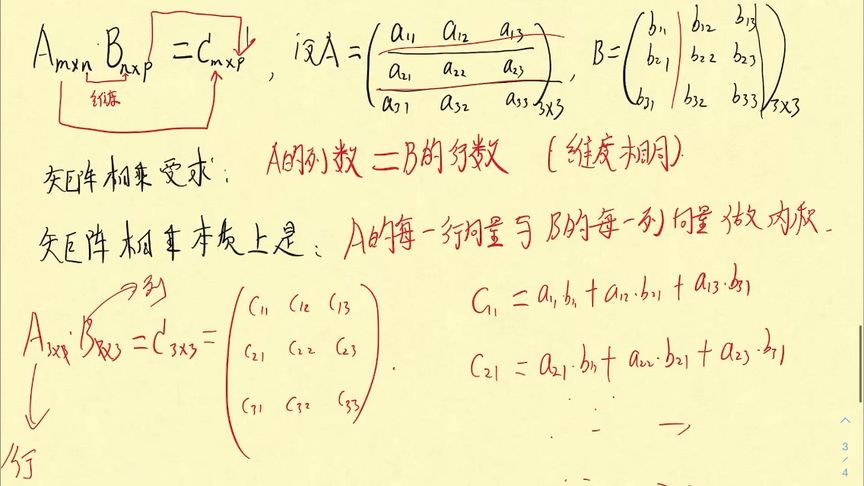 A_{m×n}·B_{n×p} = C_{m×p}, 设A = (a₁₁ a₁₂ a₁₃
a₂₁ a₂₂ a₂₃
a₃₁ a₃₂ a₃₃)_{3×3}, B = (b₁₁ b₁₂ b₁₃
b₂₁ b₂₂ b₂₃
b₃₁ b₃₂ b₃₃)_{3×3}
维度
矩阵相乘要求: A的列数=B的行数 (维度相同)
矩阵相乘本质上是: A的每一行向量与B的每一列向量做内积.
列
A·B = C_{3×3} = (C₁₁ C₁₂ C₁₃
C₂₁ C₂₂ C₂₃
C₃₁ C₃₂ C₃₃).
行
C₁₁ = a₁₁·b₁₁ + a₁₂·b₂₁ + a₁₃·b₃₁
C₂₁ = a₂₁·b₁₁ + a₂₂·b₂₁ + a₂₃·b₃₁
3
/
4